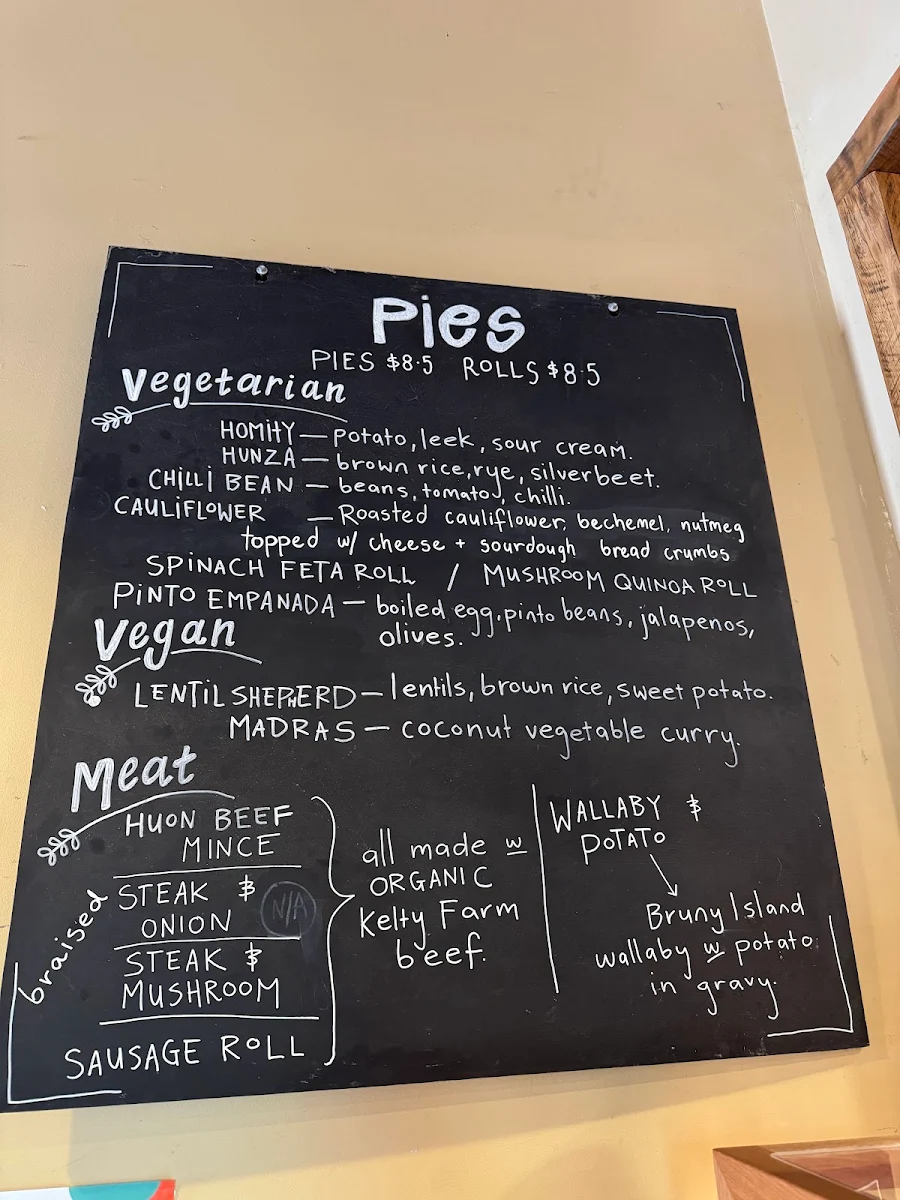 Pies
PIES $8.5 ROLLS $8.5
Vegetarian
HOMITY — potato, leek, sour cream.
HUNZA — brown rice, rye, silverbeet.
CHILLI BEAN — beans, tomato, chilli.
CAULIFLOWER — Roasted cauliflower, bechemel, nutmeg
topped w/ cheese + sourdough bread crumbs
SPINACH FETA ROLL / MUSHROOM QUINOA ROLL
PINTO EMPANADA — boiled egg, pinto beans, jalapenos,
olives.
Vegan
LENTIL SHEPHERD — lentils, brown rice, sweet potato.
MADRAS — coconut vegetable curry.
Meat
HUON BEEF
MINCE
braised
STEAK &
ONION N/A
STEAK &
MUSHROOM
SAUSAGE ROLL
all made w
ORGANIC
Kelty Farm
beef.
WALLABY &
POTATO
Bruny Island
wallaby w potato
in gravy.